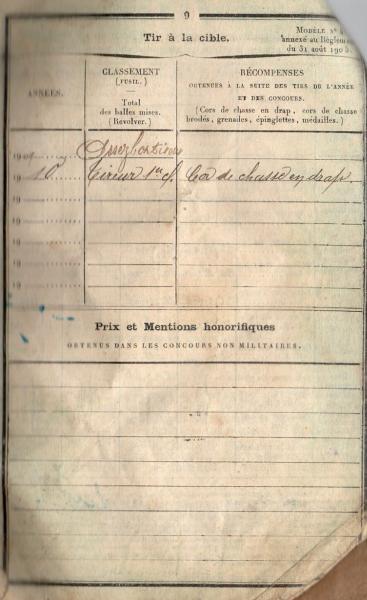 9
Tir à la cible.
MODÈLE N°
annexé au Règlem
du 31 août 190
ANNÉES.
CLASSEMENT
(FUSIL.)
Total
des balles mises.
(Revolver.)
RÉCOMPENSES
OBTENUES À LA SUITE DES TIRS DE L'ANNÉE
ET DES CONCOURS.
(Cors de chasse en drap, cors de chasse
brodés, grenades, épinglettes, médailles.)
19 Assez bon tireur
1910 Tireur 1re Cor de chasse en drap.
19
19
19
19
19
Prix et Mentions honorifiques
OBTENUS DANS LES CONCOURS NON MILITAIRES.